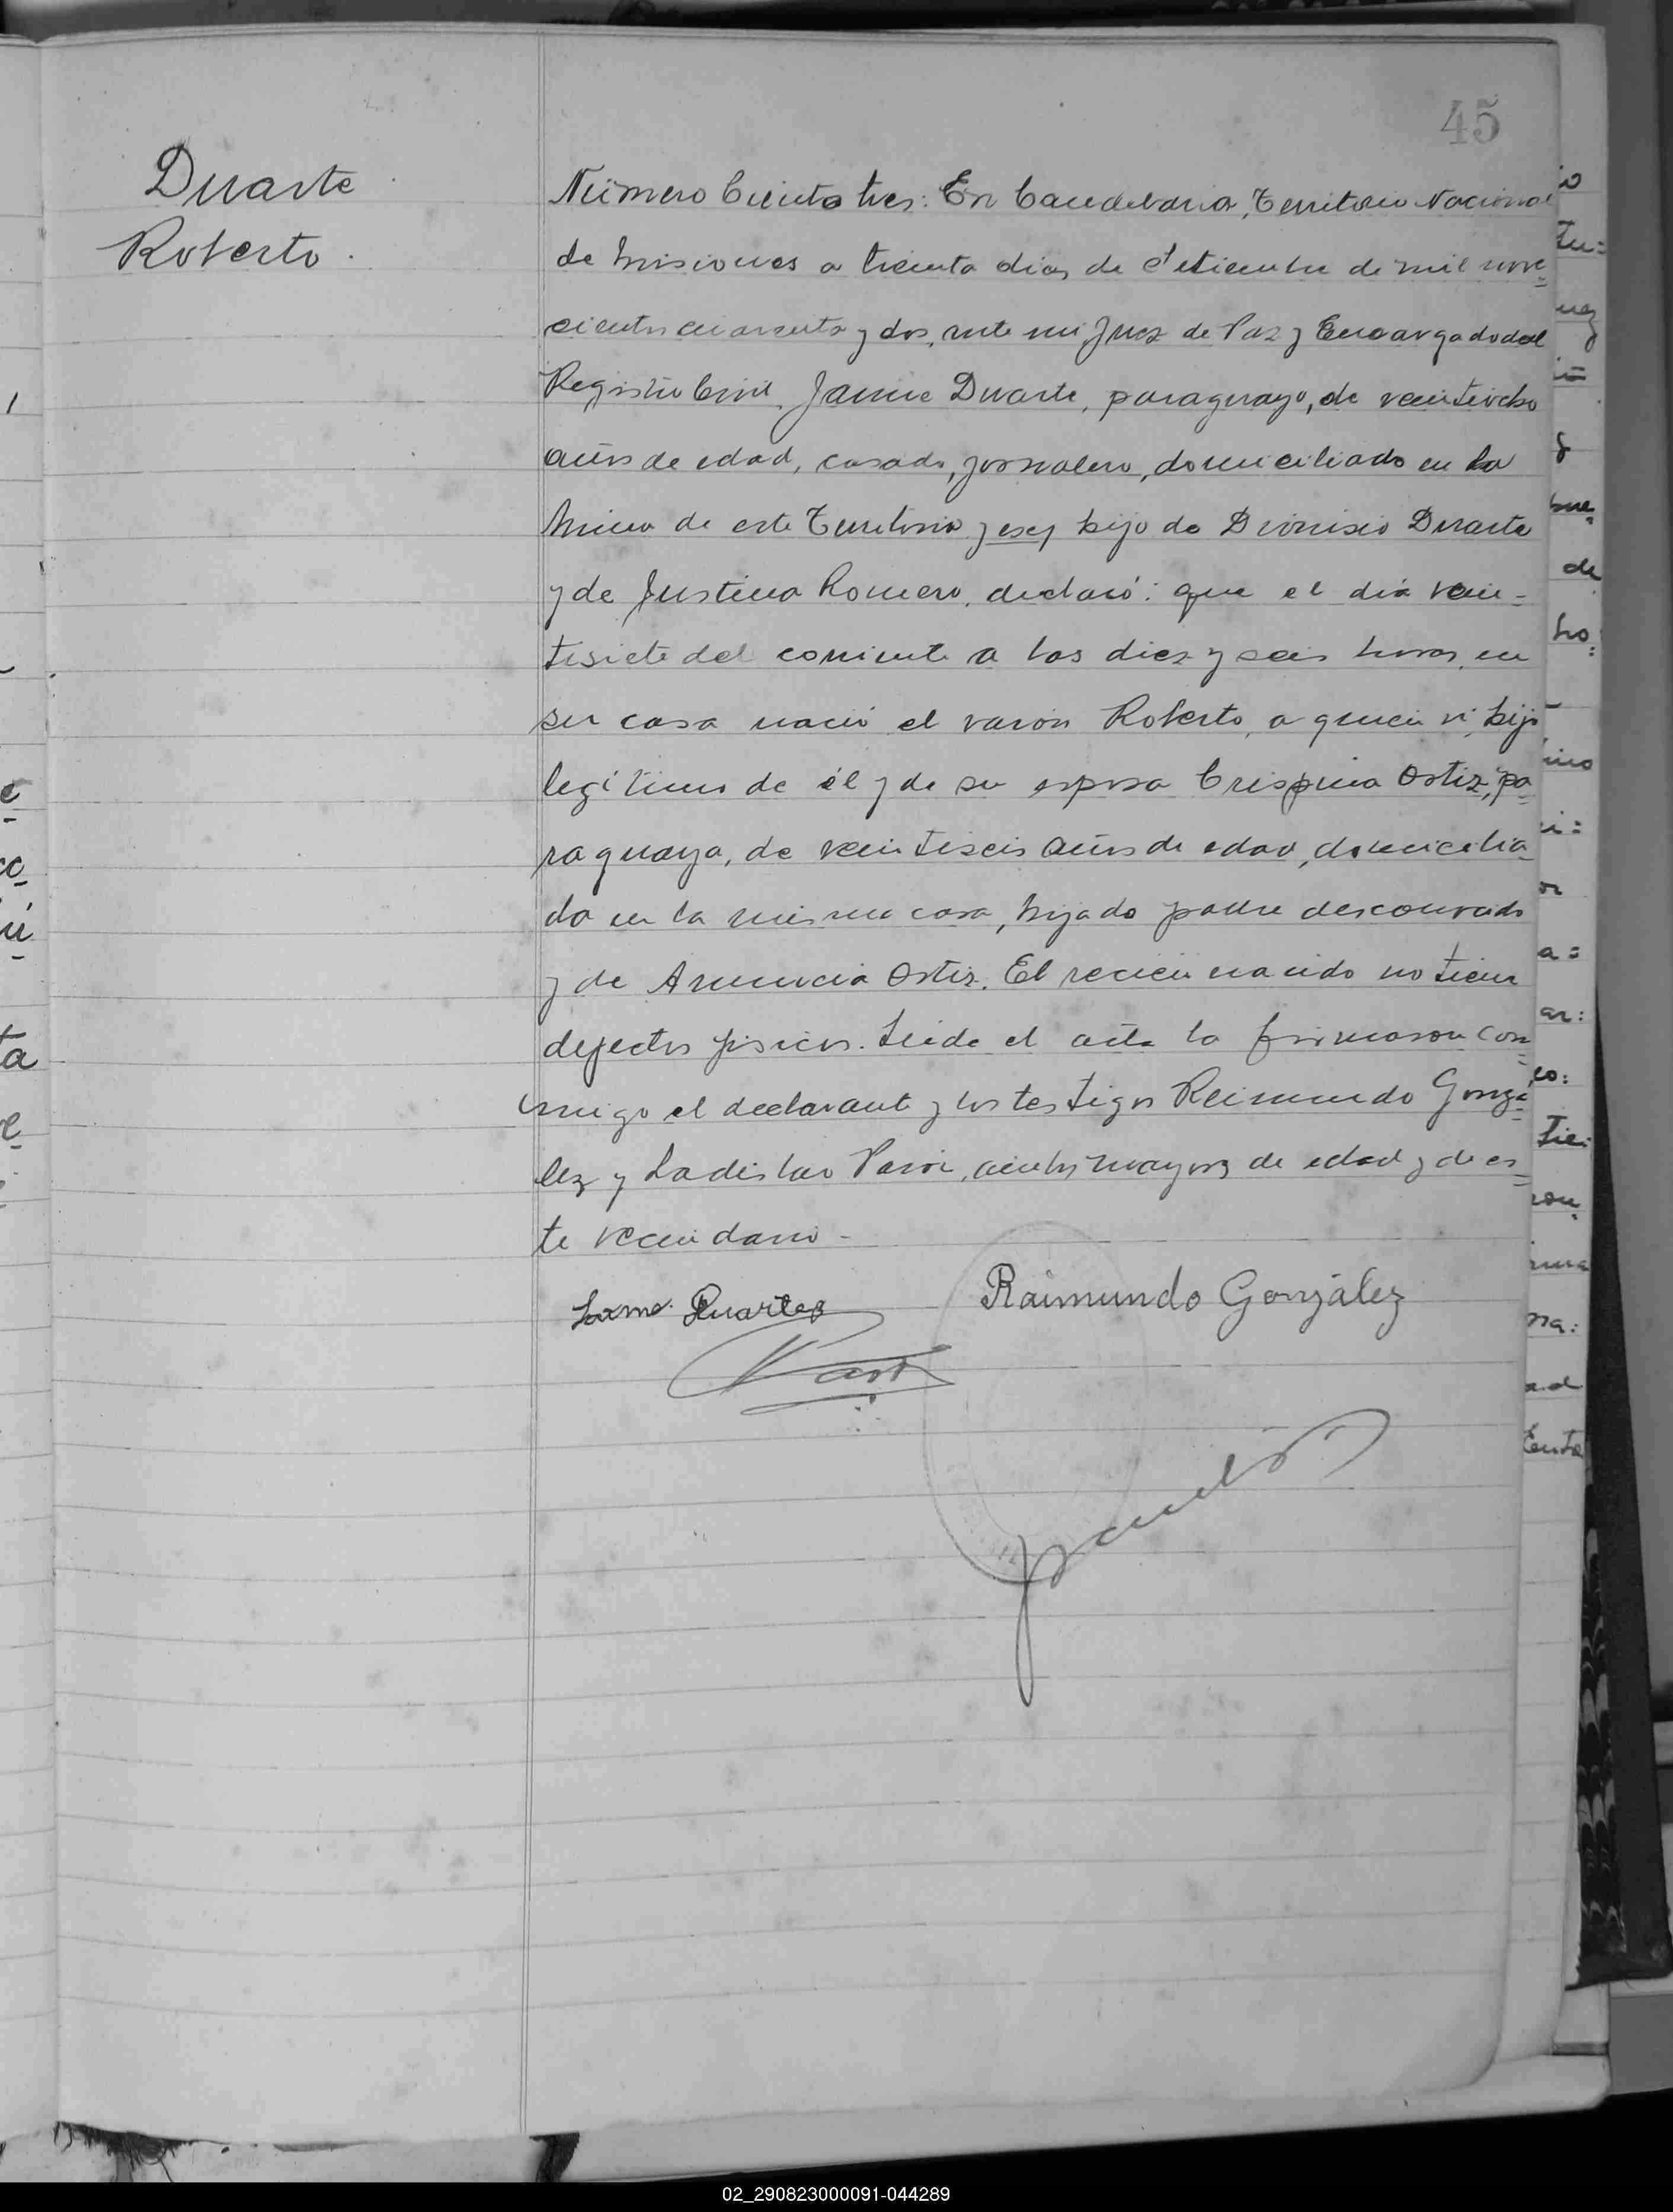 45
Duarte
Roberto.
Número Ciento tres: En Candelaria, Territorio Nacional
de Misiones a treinta dias de Setiembre de mil nove=
cientos cuarenta y dos, ante mi Juez de Paz y Encargado del
Registro Civil, Jaime Duarte, paraguayo, de veintiocho
años de edad, casado, jornalero, domiciliado en La
Mina de este Territorio, hijo de Dionisio Duarte
y de Justina Romero, declaró: que el dia vein=
tisiete del corriente a las diez y seis horas, en
su casa nació el varón Roberto, a quien vi, hijo
legítimo de él y de su esposa Crispina Ortiz, pa=
raguaya, de veintiseis años de edad, domicilia=
da en la misma casa, hija de padre desconocido
y de Anuncia Ortiz. El recien nacido no tiene
defectos fisicos. Leida el acta la firmaron con=
migo el declarante y los testigos Reimundo Gonzá=
lez y Ladislao, mayores de edad y de es=
te vecindario -
Duarte
Raimundo González
02_290823000091-044289